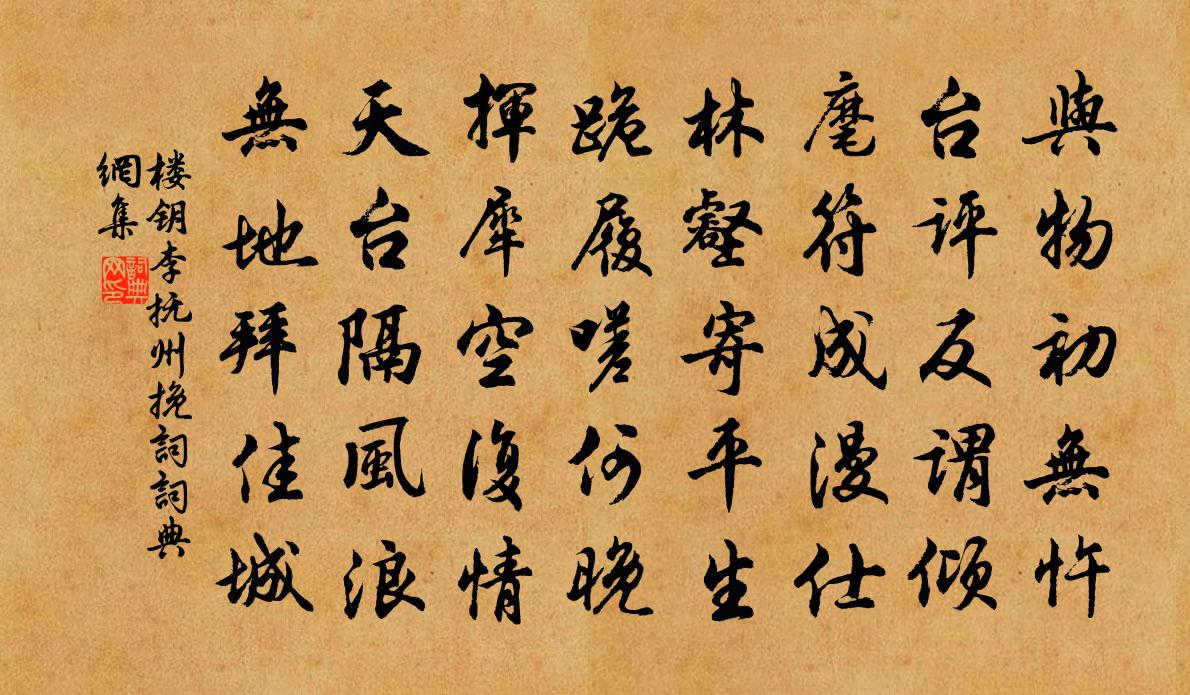 與物初無忤
台評反謂傾
麾符成漫仕
林壑寄平生
跪履嗟何晚
揮犀空復情
天台隔風浪
無地拜佳城
楼钥李抚州挽詞詞典
網集
詞典网印